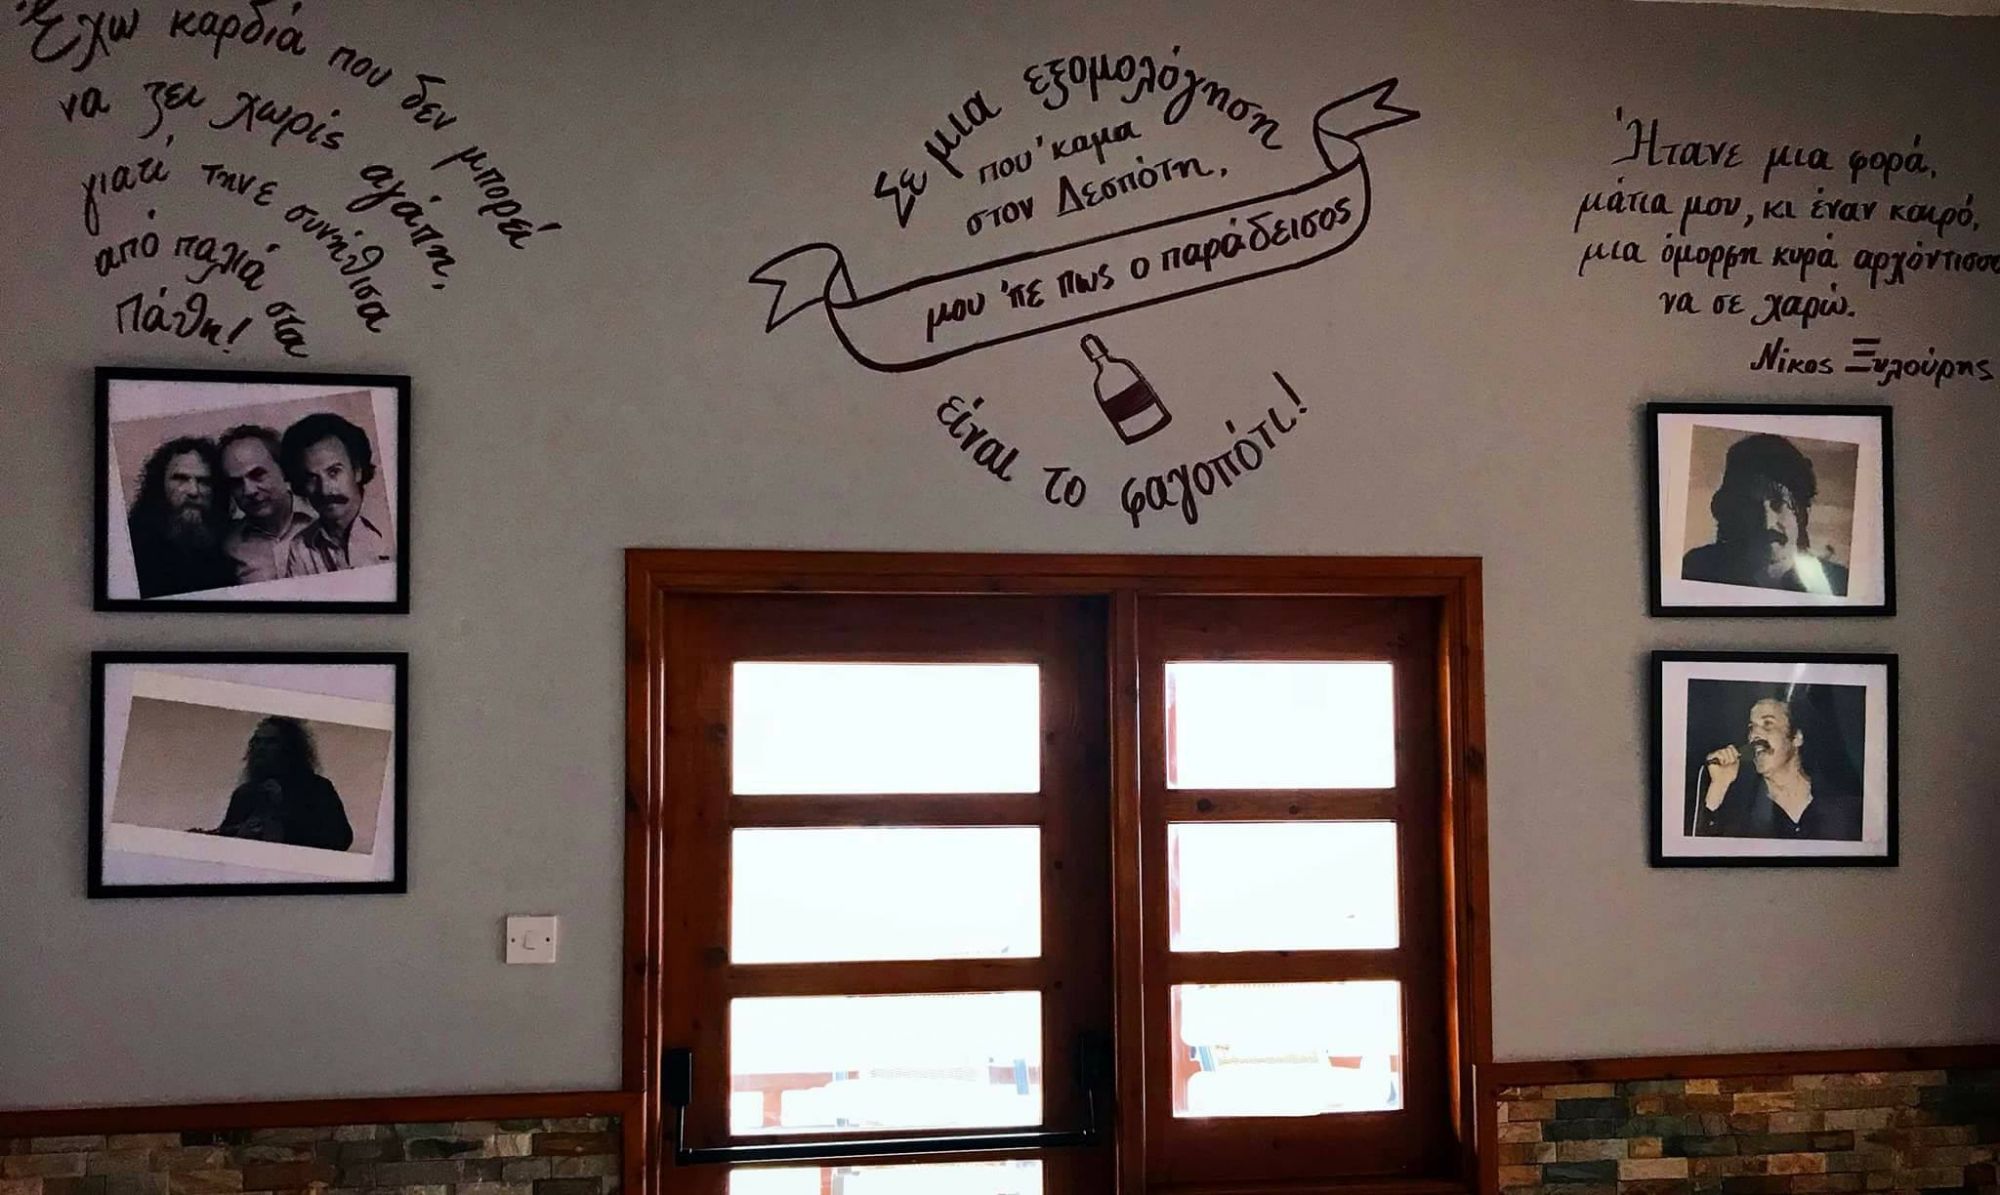 Έχω καρδιά που δεν μπορεί
να ζει χωρίς αγάπη,
γιατί τηνε συνήθισα
από παλιά στα
Πάθη!
Σε μια εξομολόγηση
που 'καμα
στον Δεσπότη,
μου 'πε πως ο παράδεισος
είναι το φαγοπότι!
Ήτανε μια φορά,
μάτια μου, κι έναν καιρό,
μια όμορφη κυρά αρχόντισσα
να σε χαρώ.
Νίκος Ξυλούρης